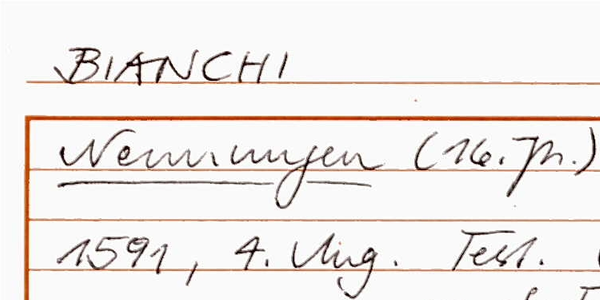 BIANCHI
Nennungen (16. Jh.)
1591, 4. Aug. Test.